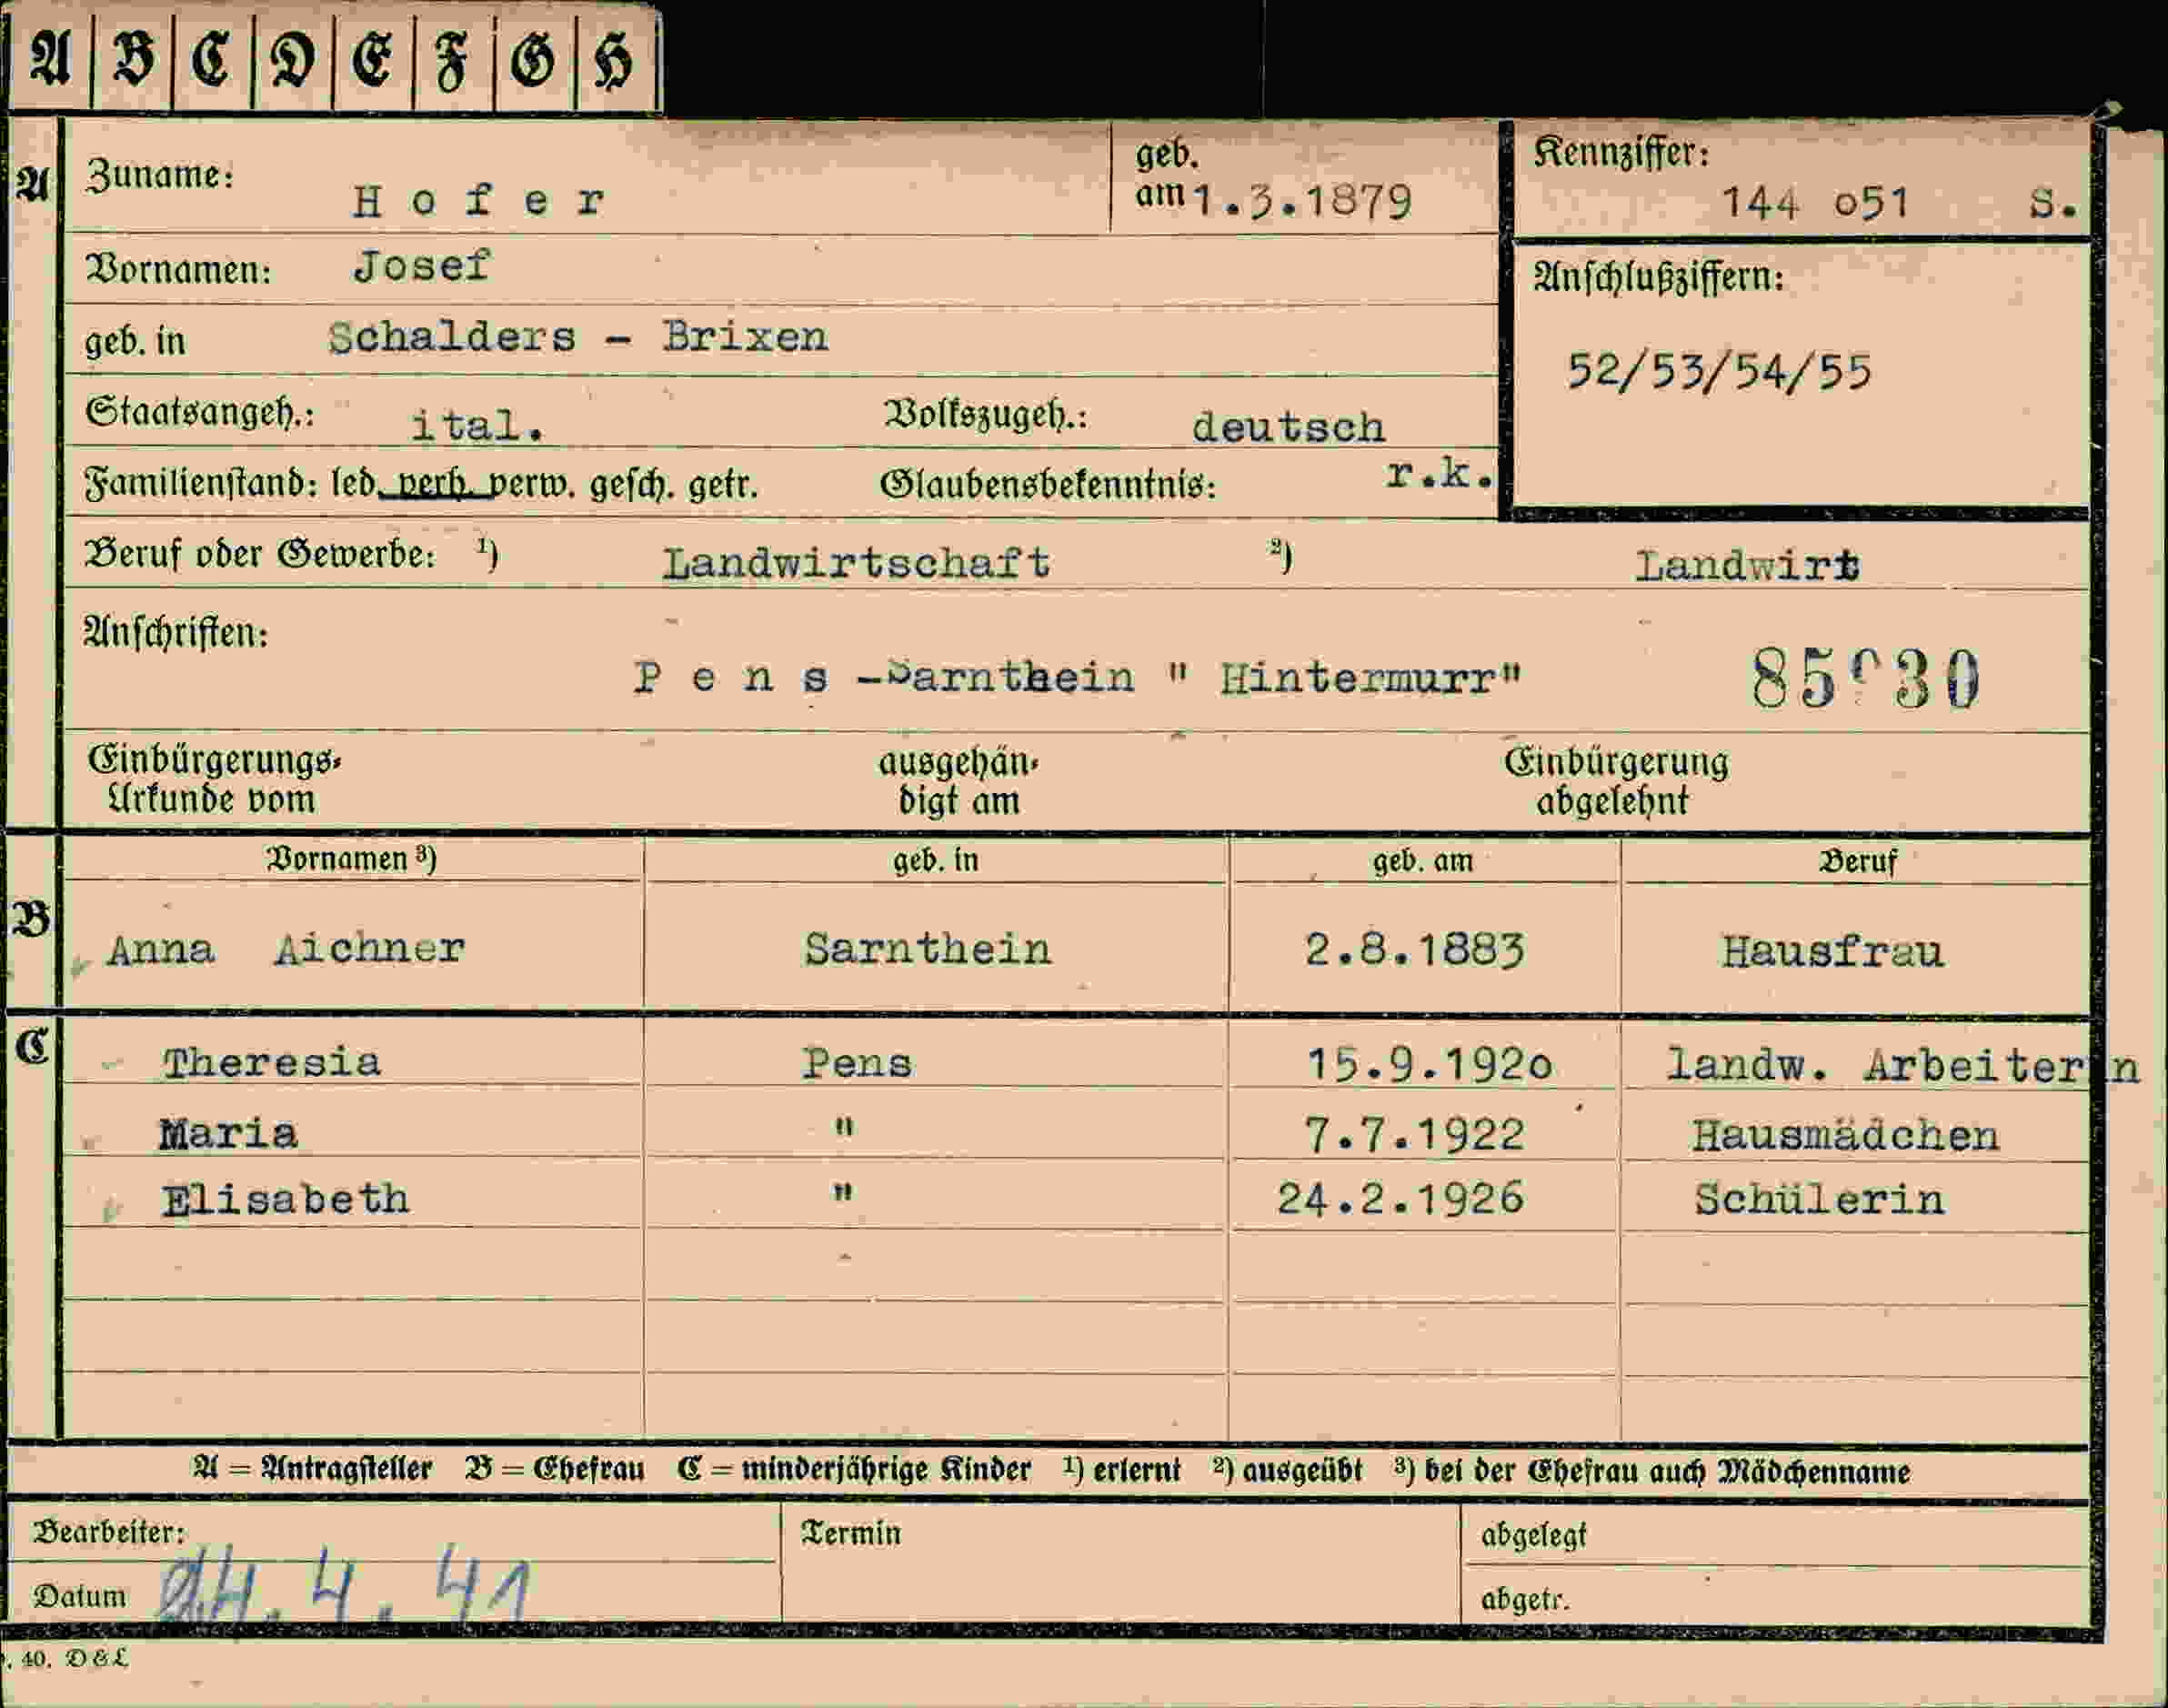 A B C D E F G H
A Zuname: Hofer geb. am 1.3.1879 Kennziffer: 144 o51 S.
Vornamen: Josef
Anschlußziffern:
geb. in Schalders - Brixen
52/53/54/55
Staatsangeh.: ital. Volkszugeh.: deutsch
Familienstand: led. verh. verw. gesch. getr. Glaubensbekenntnis: r.k.
Beruf oder Gewerbe: 1) Landwirtschaft 2) Landwirt
Anschriften:
Pens -Sarnthein " Hintermurr" 85030
Einbürgerungs- Urkunde vom ausgehän- digt am Einbürgerung abgelehnt
Vornamen 3) geb. in geb. am Beruf
B Anna Aichner Sarnthein 2.8.1883 Hausfrau
C Theresia Pens 15.9.192o landw. Arbeiterin
Maria " 7.7.1922 Hausmädchen
Elisabeth " 24.2.1926 Schülerin
A = Antragsteller B = Ehefrau C = minderjährige Kinder 1) erlernt 2) ausgeübt 3) bei der Ehefrau auch Mädchenname
Bearbeiter: Termin abgelegt
Datum 24.4.41 abgetr.
. 40. D & L